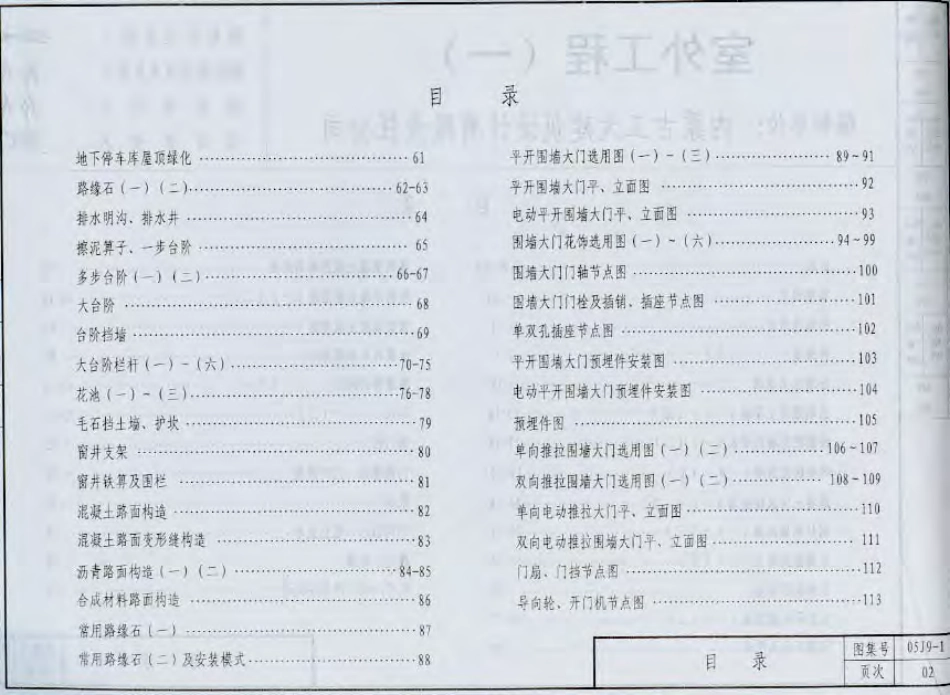 目 录
地下停车库屋顶绿化 …… 61
路缘石(一)(二) …… 62-63
排水明沟、排水井 …… 64
擦泥箅子、一步台阶 …… 65
多步台阶(一)(二) …… 66-67
大台阶 …… 68
台阶挡墙 …… 69
大台阶栏杆(一)-(六) …… 70-75
花池(一)-(三) …… 76-78
毛石挡土墙、护坎 …… 79
窗井支架 …… 80
窗井铁箅及围栏 …… 81
混凝土路面构造 …… 82
混凝土路面变形缝构造 …… 83
沥青路面构造(一)(二) …… 84-85
合成材料路面构造 …… 86
常用路缘石(一) …… 87
常用路缘石(二)及安装模式 …… 88
平开围墙大门选用图(一)-(三) …… 89~91
平开围墙大门平、立面图 …… 92
电动平开围墙大门平、立面图 …… 93
围墙大门花饰选用图(一)~(六) …… 94~99
围墙大门门轴节点图 …… 100
围墙大门门栓及插销、插座节点图 …… 101
单双孔插座节点图 …… 102
平开围墙大门预埋件安装图 …… 103
电动平开围墙大门预埋件安装图 …… 104
预埋件图 …… 105
单向推拉围墙大门选用图(一)(二) …… 106~107
双向推拉围墙大门选用图(一)(二) …… 108~109
单向电动推拉大门平、立面图 …… 110
双向电动推拉围墙大门平、立面图 …… 111
门扇、门挡节点图 …… 112
导向轮、开门机节点图 …… 113
目 录 图集号 05J9-1
页次 02